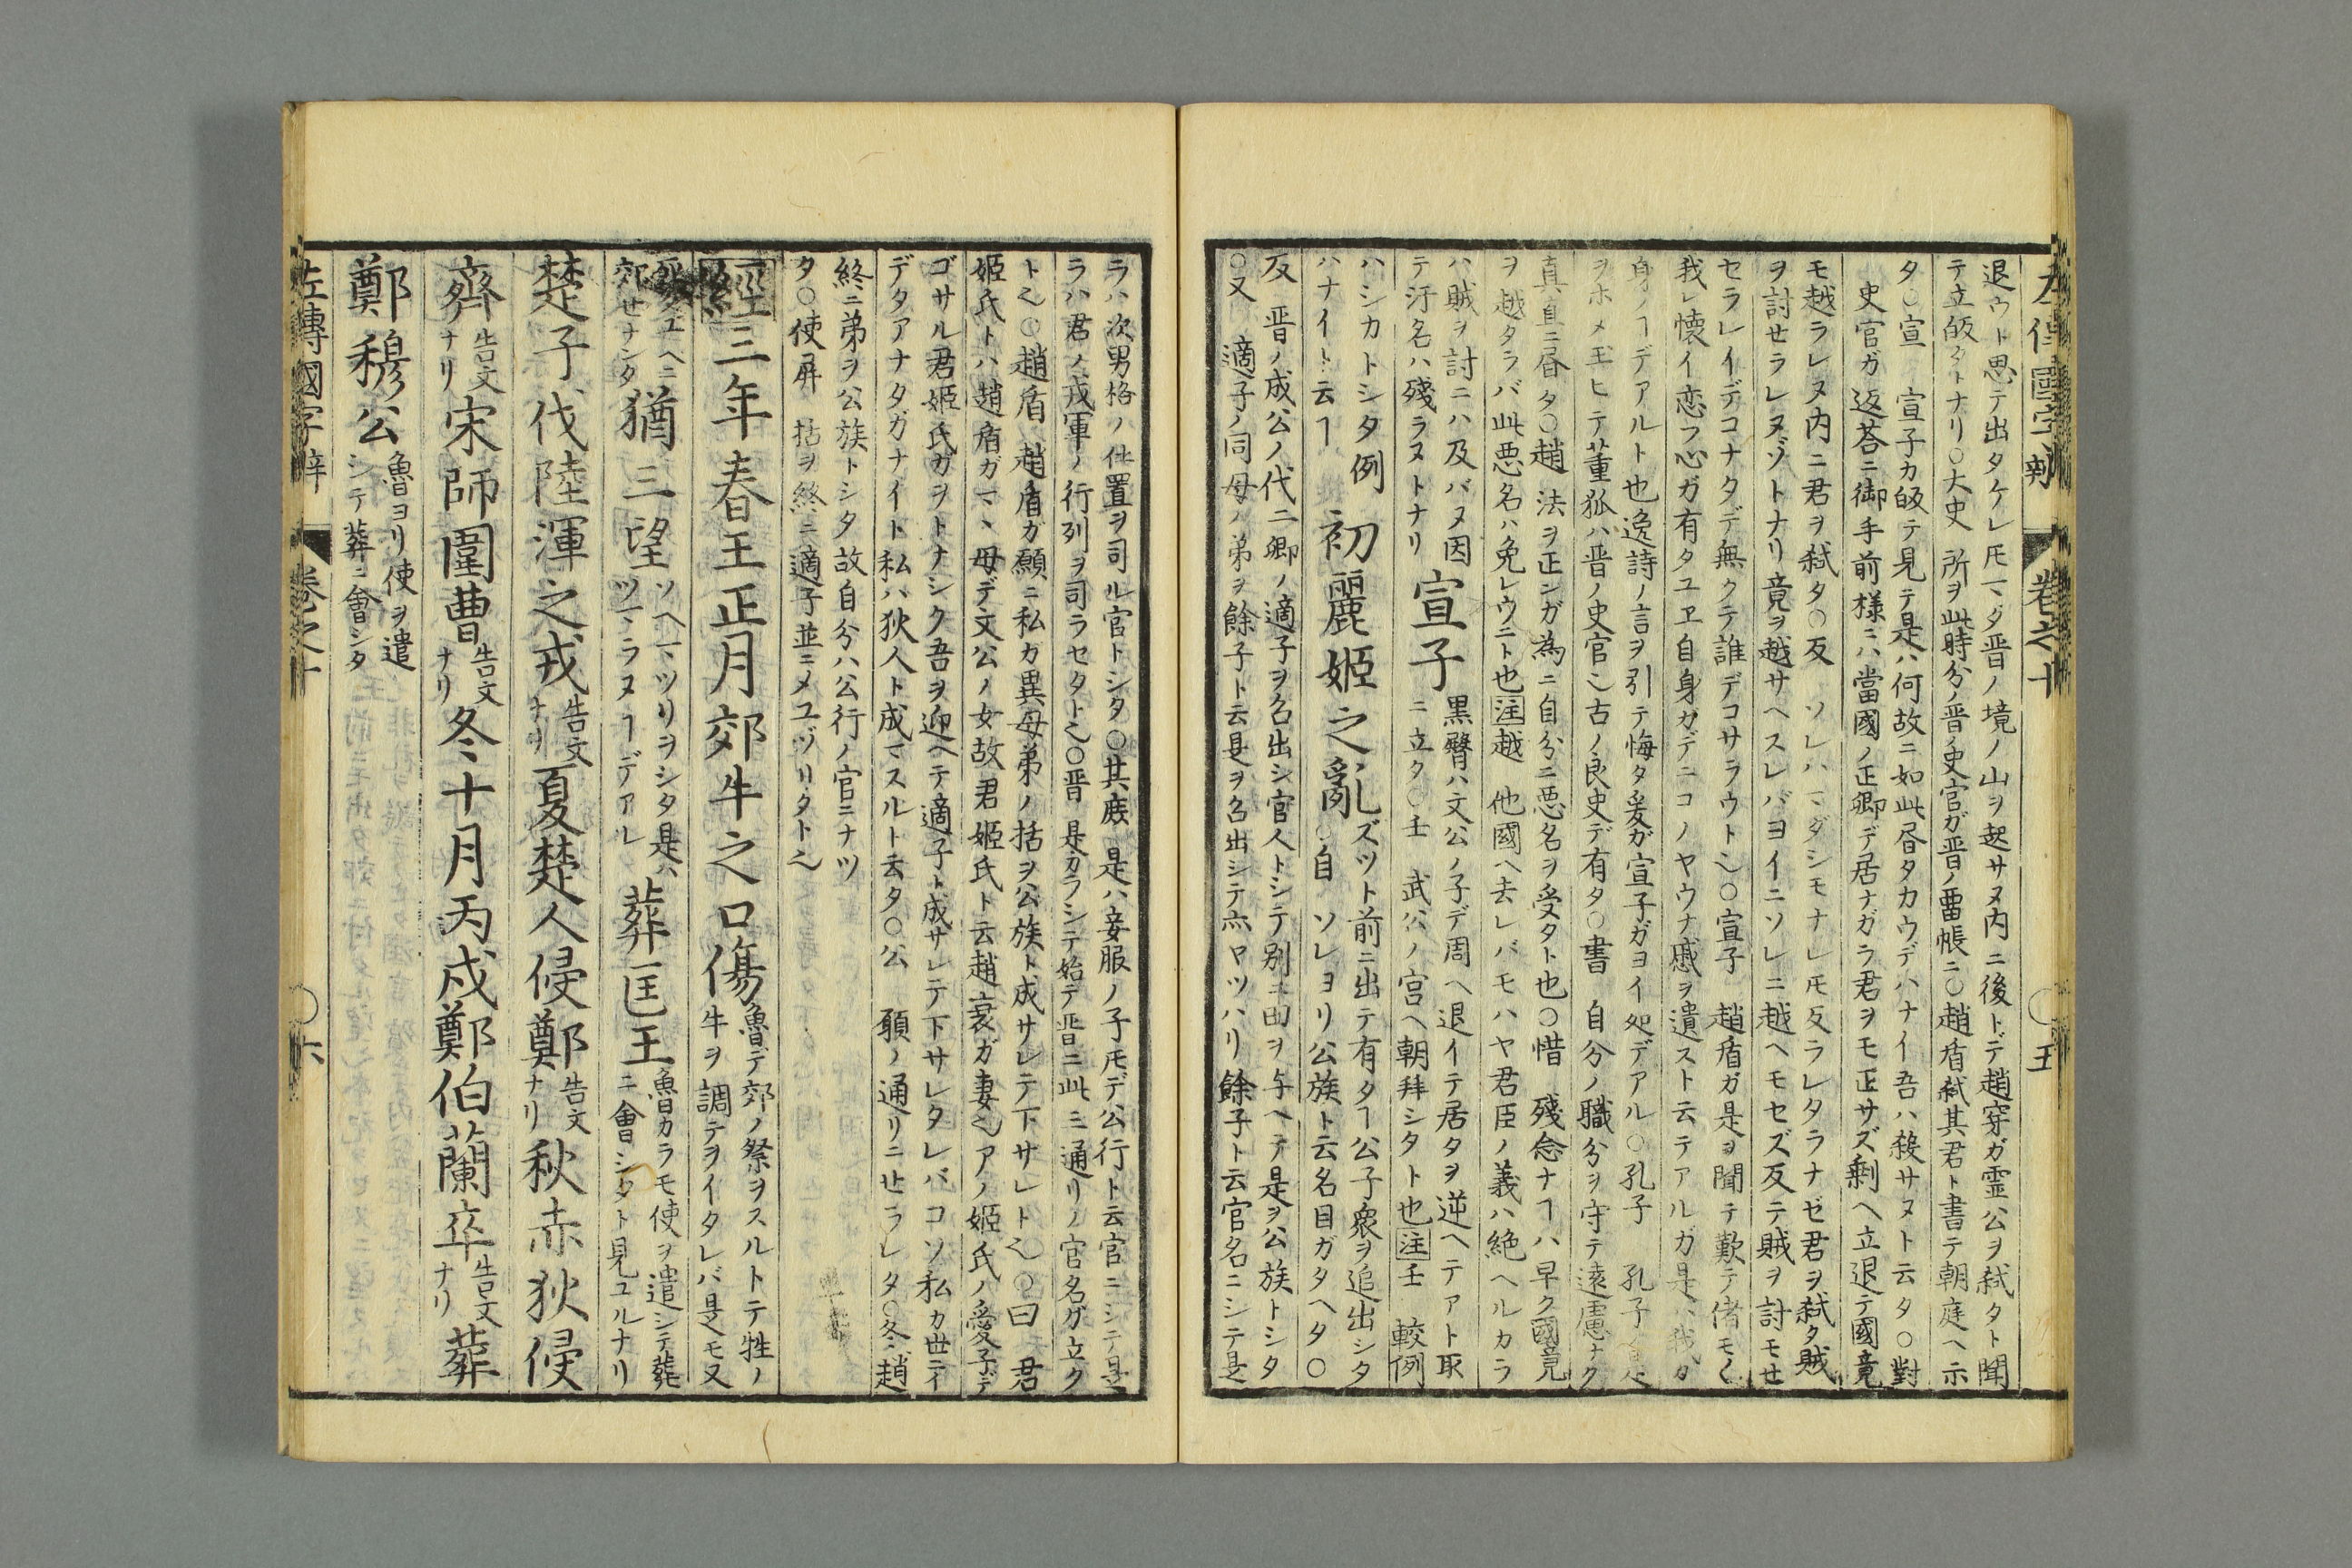 左傳國字辯 卷之十 〇五
退ウト思テ出タケレ𪜈マダ晋ノ境ノ山ヲ越サヌ内ニ後トデ趙穿ガ霊公ヲ弑タト聞
テ立皈タトナリ〇大史 所ヲ此時分ノ晋ノ史官ガ晋ノ畱帳ニ〇趙盾弑其君ト書テ朝庭ヘ示
タ〇宣 宣子カ皈テ見テ是ハ何故ニ如此昏タカウデハナイ吾ハ殺サヌト云タ〇對
史官ガ返荅ニ御手前様ニハ當國ノ正卿デ居ナガラ君ヲモ正サズ剰ヘ立退テ國竟
モ越ラレヌ内ニ君ヲ弑タ〇反 ソレハマダシモナレ𪜈反ラレタラナゼ君ヲ弑タ賊
ヲ討せラレヌゾトナリ竟ヲ越サヘスレバヨイニソレニ越ヘモセズ反テ賊ヲ討モせ
セラレイデコナタデ無クテ誰デコサラウト也〇宣子 趙盾ガ是ヲ聞テ歎テ偖モ〱
我レ懐イ恋フ心ガ有タユヱ自身ガデニコノヤウナ慼ヲ遺スト云テアルガ是ハ我ガ
身ノヿデアルト也逸詩ノ言ヲ引テ悔タ爰ガ宣子ガヨイ処デアル〇孔子 孔子
ヲホメ玉ヒテ董狐ハ晋ノ史官也古ノ良史デ有タ〇書 自分ノ職分ヲ守テ遠慮ナク
真直ニ昏タ〇趙 法ヲ正シガ為ニ自分ニ悪名ヲ受タト也〇惜 殘念ナヿハ早ク國竟
ヲ越タラバ此悪名ハ免レウニト也注越 他國ヘ去レバモハヤ君臣ノ義ハ絶ヘルカラ
ハ賊ヲ討ニハ及バヌ因 宣子 黒臀ハ文公ノ子デ周ヘ退イテ居タヲ逆ヘテアト取
テ汙名ハ殘ラヌトナリ ニ立タ〇壬 武公ノ宮ヘ朝拜シタト也注壬 較例
ハシカトシタ例 初麗姬之亂 ズツト前ニ出テ有タヿ公子衆ヲ追出シタ
ハナイト云ヿ 〇自 ソレヨリ公族ト云名目ガタヘタ〇
及 晋ノ成公ノ代ニ卿ノ適子ヲ名出シ官人トシテ別ニ田ヲ与ヘテ是ヲ公族トシタ
〇又 適子ノ同母ノ弟ヲ餘子ト云是ヲ名出シテ亦ヤツハリ餘子ト云官名ニシテ是
ラハ次男格ノ仕置ヲ司ル官トシタ〇其庶 是ハ妾服ノ子𪜈デ公行ト云官ニシテ是
ラハ君ノ戎軍ノ行列ヲ司ラセタト也〇晋 是カラシテ始テ晋ニ此三通リノ官名ガ立タ
ト也〇趙盾 趙盾ガ願ニ私カ異母弟ノ括ヲ公族ト成サレテ下サレト也〇曰 君
姬氏トハ趙盾ガマヽ母デ文公ノ女故君姬氏ト云趙衰ガ妻也アノ姬氏ノ愛子デ
ゴサル君姬氏ガヲトナシク吾ヲ迎ヘテ適子ト成サレテ下サレタレバコソ私カ世ニイ
デタアナタガナイト私ハ狄人ト成マスルト云タ〇公 願ノ通リニせラレタ〇冬 趙
終ニ弟ヲ公族トシタ故自分ハ公行ノ官ニナツ
タ〇使屏 括ヲ終ニ適子並ニメユヅリタト也
經三年春王正月郊牛之口傷 魯デ郊ノ祭ヲスルトテ牲ノ
牛ヲ調テヲイタレバ是モ又
死タユヘニ
郊せナンダ 猶三望 ソヘマツリヲシタ是ハ
ツマラヌヿデアル 葬匡王 魯カラモ使ヲ遣シテ葬
ニ會シタト見ユルナリ
楚子伐陸渾之戎 告文
ナリ 夏楚人侵鄭 告文
ナリ 秋赤狄侵
齊 告文
ナリ 宋師圍曹 告文
ナリ 冬十月丙戌鄭伯蘭卒 告文
ナリ 葬
鄭穆公 魯ヨリ使ヲ遣
シテ葬ニ會シタ
左傳國字辯 卷之十 〇六